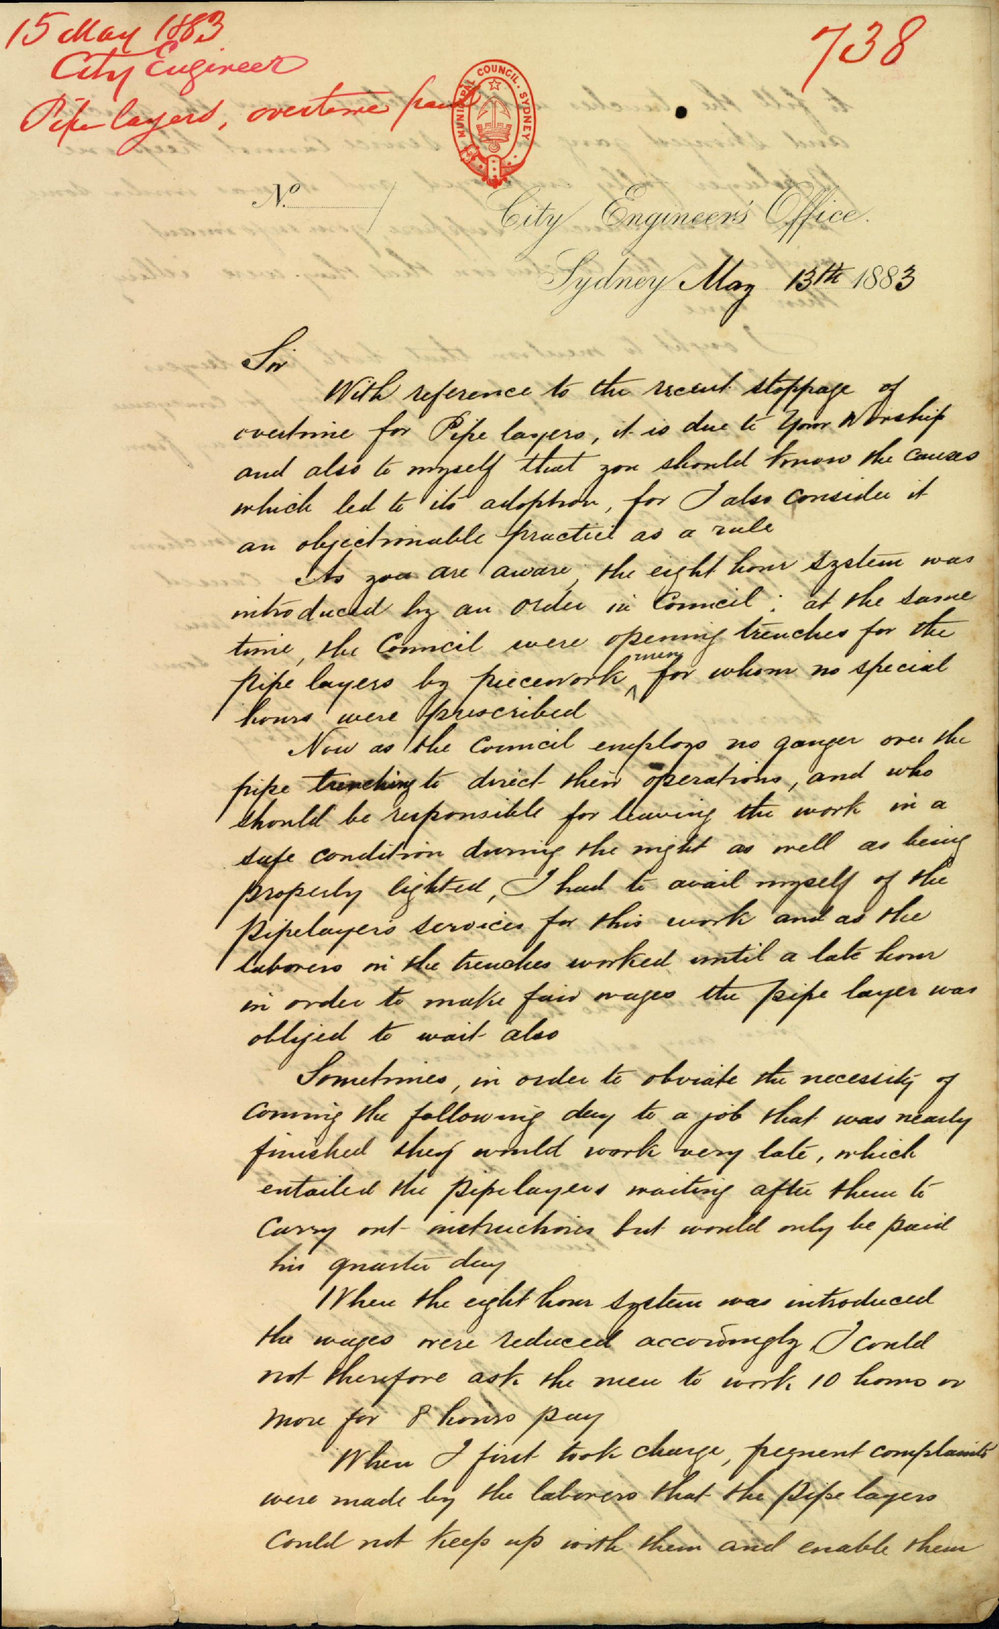 15 May 1883
City Engineer
Pipe layers, overtime paid
738
MUNICIPAL COUNCIL. SYDNEY
No
City Engineer's Office.
Sydney May 13th 1883
Sir
With reference to the recent stoppage of
overtime for Pipe layers, it is due to Your Worship
and also to myself that you should know the causes
which led to its adoption, for I also consider it
an objectionable practice as a rule
As you are aware, the eight hour system was
introduced by an order in Council; at the same
time, the Council were opening trenches for the
pipe layers by piecework men, for whom no special
hours were prescribed
Now as the Council employs no ganger over the
pipe trenching to direct their operations, and who
should be responsible for leaving the work in a
safe condition during the night as well as being
properly lighted, I had to avail myself of the
pipelayers services for this work and as the
laborers in the trenches worked until a late hour
in order to make fair wages the pipe layer was
obliged to wait also
Sometimes, in order to obviate the necessity of
coming the following day to a job that was nearly
finished they would work very late, which
entailed the pipelayers waiting after them to
carry out instructions but would only be paid
his quarter day
When the eight hour system was introduced
the wages were reduced accordingly I could
not therefore ask the men to work 10 hours or
more for 8 hours pay
When I first took charge, frequent complaints
were made by the laborers that the pipe layers
could not keep up with them and enable them